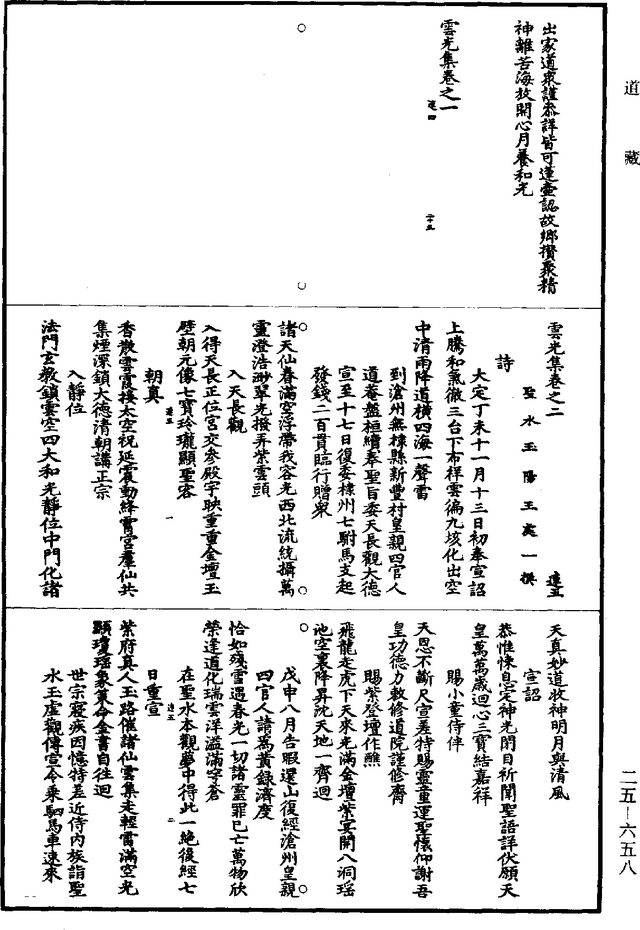 道藏
出家道衆謹叅詳皆可達壷認故鄉攢聚精
神離苦海放開心月養和光
雲光集卷之一
雲光集卷之二
聖水玉陽王處一撰
詩
大定丁未十一月十三日初奉宣詔
上騰和氣徹三台下布祥雲徧九垓化出空
中清雨降道橫四海一聲雷
到滄州無棣縣新豐村皇親四官人
道菴盤桓續奉聖旨委天長觀大德
宣至十七日復委棣州七駙馬支起
發錢二百貫臨行贈衆
諸天仙眷滿空浮帶我容光西北流統攝萬
靈澄浩渺翠光撥弄紫雲頭
入天長觀
入得天長正位宫交參殿宇映重重金壇玉
壁朝元像七寶玲瓏顯聖容
朝真
香散雲霞樓太空祝延震動絳霄宫羣仙共
集煙深鎖大德清朝講正宗
入靜位
法門玄敎鎮雲空四大和光靜位中門化諸
天真妙道收神明月與清風
宣詔
恭惟悚息定神光閉目祈聞聖語詳伏願天
皇萬萬歲迴心三寶結嘉祥
賜小童侍伴
天恩不斷尺宣差特賜靈童運聖懷仰謝吾
皇功德力敕修道院謹修齋
賜紫登壇作醮
飛龍走虎下天來光滿金壇紫宴開八洞瑶
池空裏降昇沈天地一齊迴
戊申八月告暇還山復經滄州皇親
四官人請爲黄籙濟度
恰如殘雪遇春光一切諸靈罪已亡萬物欣
榮逢道化瑞雲洋溢滿穹蒼
在聖水本觀夢中得此一絶後經七
日重宣
紫府真人玉路催諸仙雲集走輕雷滿空光
顯瓊瑶象算命金書自往迴
世宗寢疾因憶特差近侍内族詣聖
水玉虚觀傳宣令乘駟馬車速來
二五—六五八